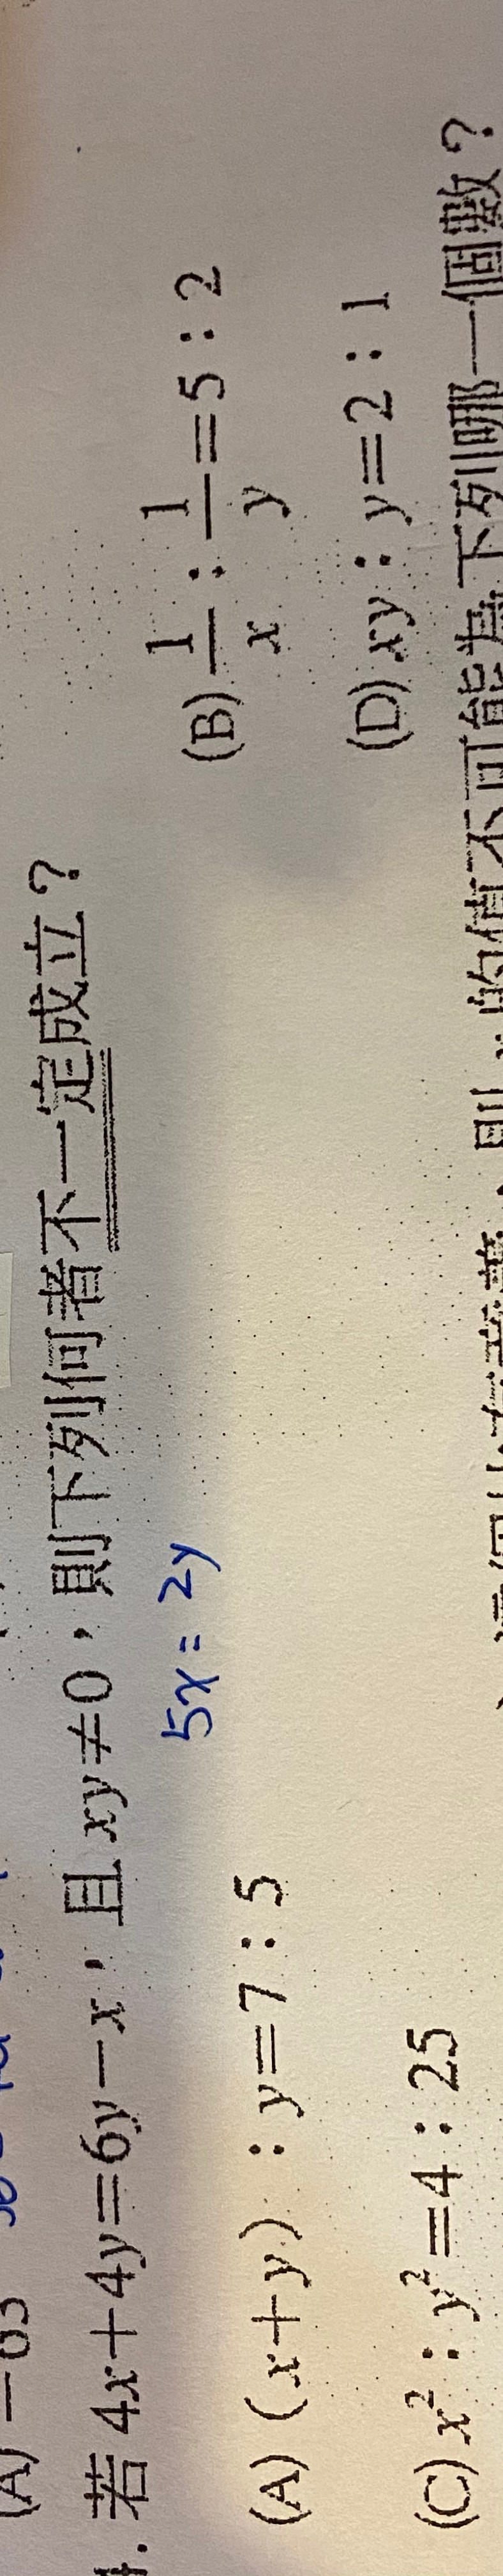 (A) −65
4. 若 4x＋4y＝6y－x，且 xy≠0，則下列何者不一定成立？
5x = 2y
(A) (x＋y)：y＝7：5
(B) 1/x：1/y＝5：2
(C) x²：y²＝4：25
(D) xy：y＝2：1
則 的值不可能為下列哪一個數？